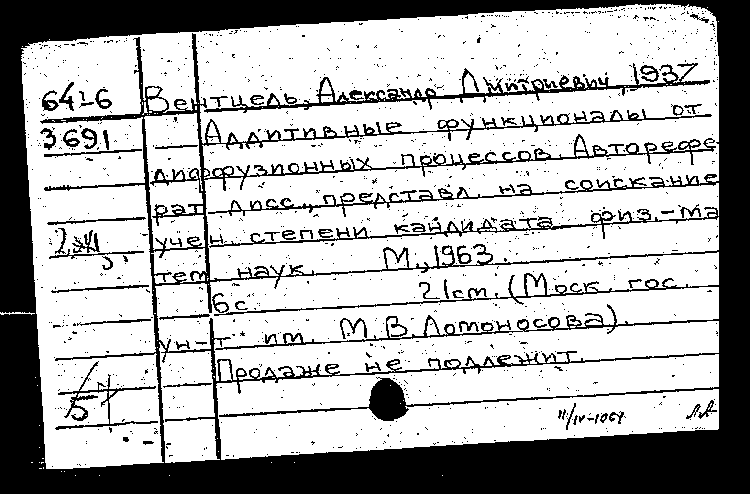 64-6 Вентцель, Александр Дмитриевич, 1937
3691 Аддитивные функционалы от
диффузионных процессов. Авторефе
рат дисс., представл. на соискание
учен. степени кандидата физ.-ма
тем. наук. М., 1963.
6с. 21см. (Моск. гос.
ун-т им. М.В.Ломоносова).
Продаже не подлежит.